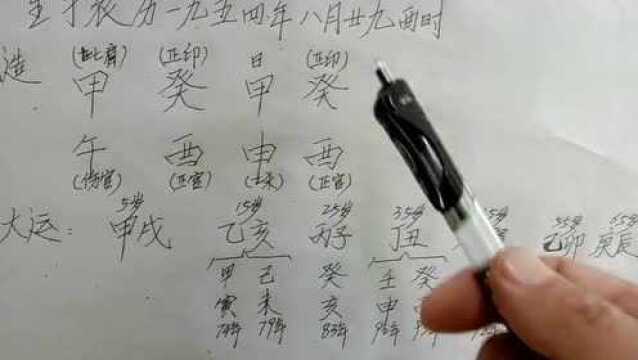 生于农历一九五四年八月廿九酉时
(比肩) (正印) 日 (正印)
造 甲 癸 甲 癸
午 酉 申 酉
(伤官) (正官) (七杀) (正官)
5岁 15岁 25岁 35岁 55岁 65岁
大运: 甲戌 乙亥 丙子 丁丑 己卯 庚辰
甲 己 癸 壬 癸
寅 未 亥 申
74年 79年 83年